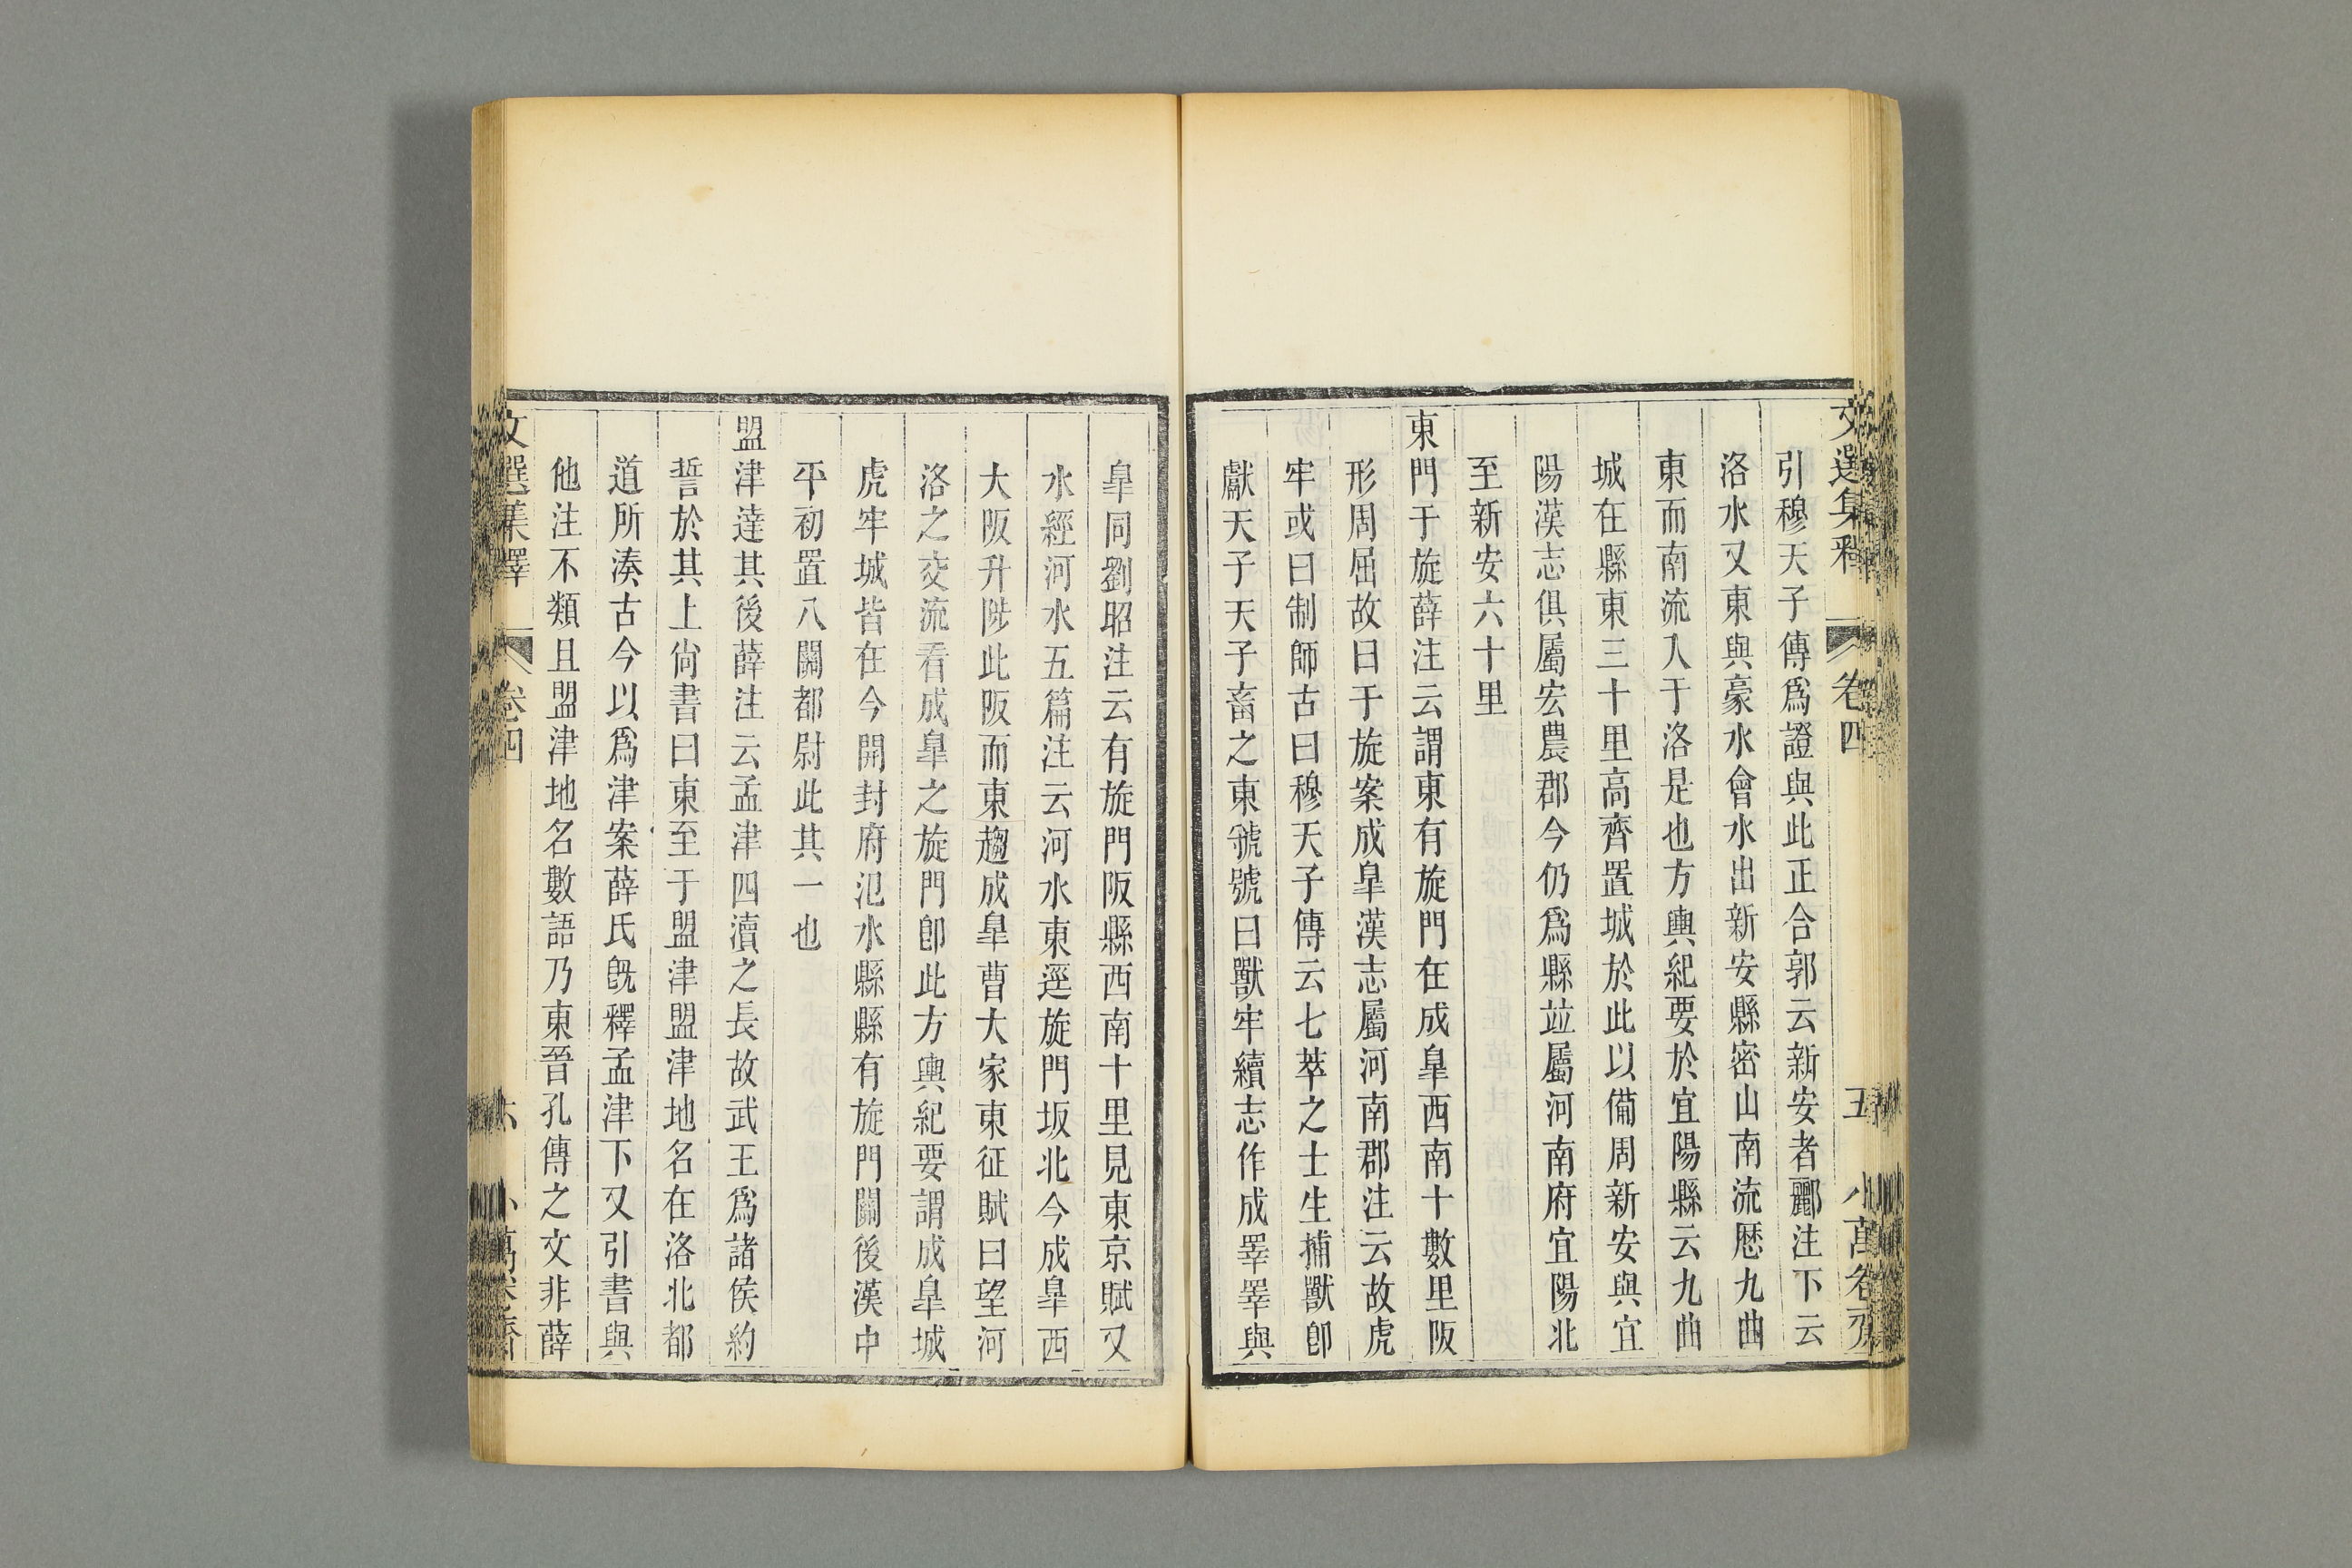 文選集釋 卷四 五 小萬卷齋
引穆天子傳爲證與此正合郭云新安者酈注下云
洛水又東與豪水會水出新安縣密山南流歷九曲
東而南流入于洛是也方輿紀要於宜陽縣云九曲
城在縣東三十里高齊置城於此以備周新安與宜
陽漢志俱屬宏農郡今仍爲縣竝屬河南府宜陽北
至新安六十里
東門于旋薛注云謂東有旋門在成臯西南十數里阪
形周屈故曰于旋案成臯漢志屬河南郡注云故虎
牢或曰制師古曰穆天子傳云七萃之士生捕獸卽
獻天子天子畜之東虢號曰獸牢續志作成睪睪與
臯同劉昭注云有旋門阪縣西南十里見東京賦又
水經河水五篇注云河水東逕旋門坂北今成臯西
大阪升陟此阪而東趨成臯曹大家東征賦曰望河
洛之交流看成臯之旋門卽此方輿紀要謂成臯城
虎牢城皆在今開封府汜水縣縣有旋門關後漢中
平初置八關都尉此其一也
盟津達其後薛注云孟津四瀆之長故武王爲諸侯約
誓於其上尙書曰東至于盟津盟津地名在洛北都
道所湊古今以爲津案薛氏旣釋孟津下又引書與
他注不類且盟津地名數語乃東晉孔傳之文非薛
文選集釋 卷四 六 小萬卷齋